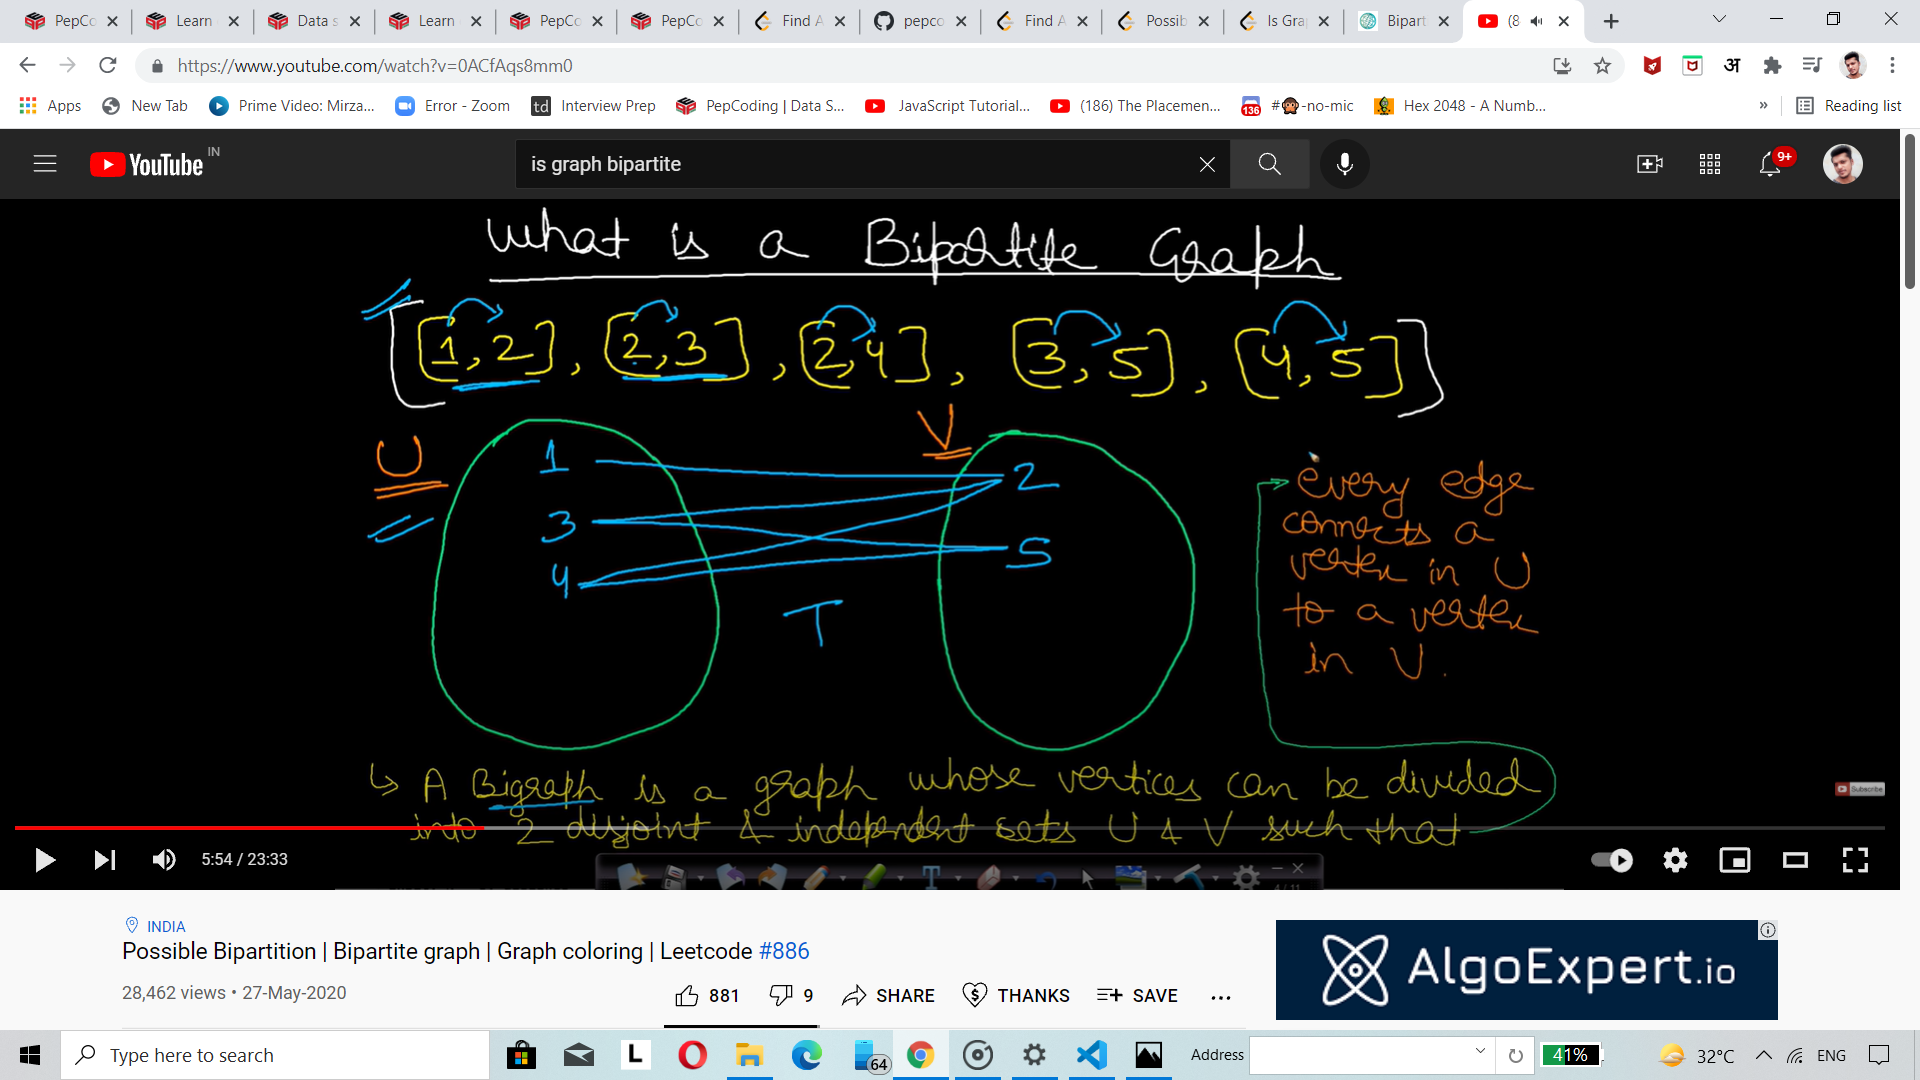 PepCo Learn Data s Learn PepCo PepCo Find A pepco Find A Possib Is Gra Bipart (8
https://www.youtube.com/watch?v=0ACfAqs8mm0
Apps New Tab Prime Video: Mirza... Error - Zoom td Interview Prep PepCoding | Data S... JavaScript Tutorial... (186) The Placemen... 136 #🙊-no-mic Hex 2048 - A Numb... » Reading list
YouTube IN is graph bipartite 9+
What is a Bipartite Graph
[[1,2], [2,3], [2,4], [3,5], [4,5]]
U V
1 2
3 5
4
T
every edge
connects a
vertex in U
to a vertex
in V.
↳ A Bigraph is a graph whose vertices can be divided
into 2 disjoint & independent sets U & V such that
Subscribe
5:54 / 23:33
4 / 11
INDIA
Possible Bipartition | Bipartite graph | Graph coloring | Leetcode #886
28,462 views • 27-May-2020
881 9 SHARE THANKS SAVE ...
AlgoExpert.io
Type here to search L 64 Address 41% 32°C ENG